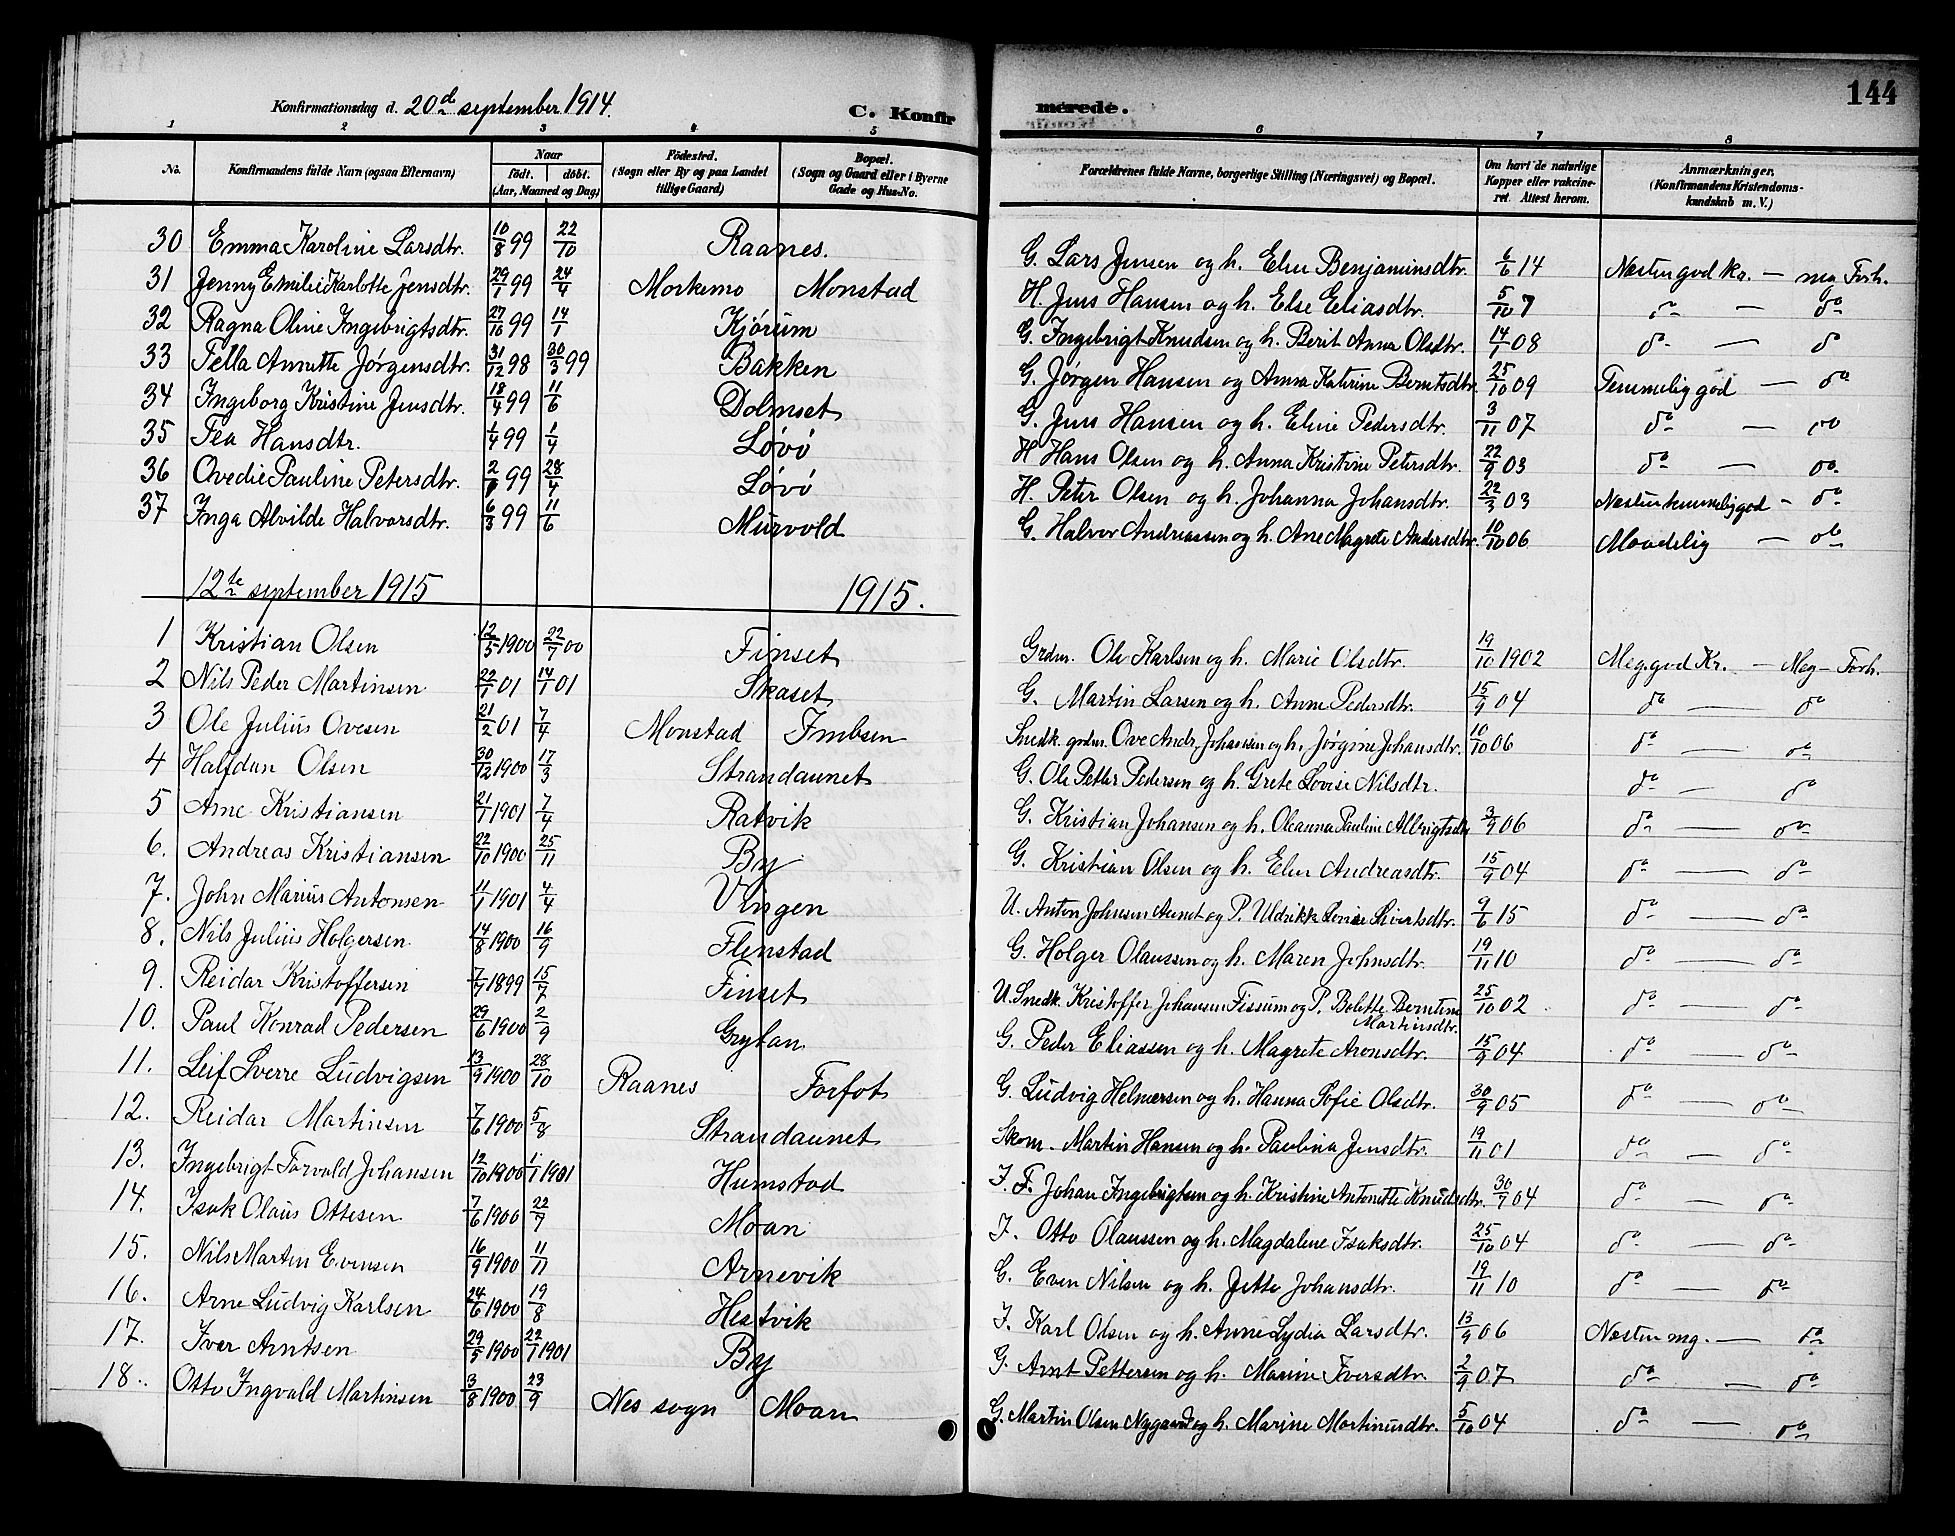 144
Konfirmationsdag d. 20d september 1914.
C. Konfirmerede.
1 2 3 4 5 6 7 8
No. Konfirmandens fulde Navn (ogsaa Efternavn) Naar født. døbt. (Aar, Maaned og Dag) Födested. (Sogn eller By og paa Landet tillige Gaard) Bopæl. (Sogn og Gaard eller i Byerne Gade og Hus-No. Forældrenes fulde Navne, borgerlige Stilling (Næringsvei) og Bopæl. Om havt de naturlige Kopper eller vakcineret. Attest herom. Anmærkninger. (Konfirmandens Kristendomskundskab m. V.)
30 Emma Karoline Larsdtr. 10/8 99 22/10 Raanes. G. Lars Jensen og h. Elen Benjaminsdtr. 6/6 14 Næsten god Kr. — meg Forh.
31 Jenny Emilie Karlotte Jensdtr. 29/1 99 24/4 Morkemo Monstad H. Jens Hansen og h. Else Eliasdtr. 5/10 7 do — do
32 Ragna Oline Ingebrigtsdtr. 27/10 99 14/1 Kjørum G. Ingebrigt Knudsen og h. Berit Anna Olsdtr. 14/1 08 do — do
33 Tella Annette Jørgensdtr. 31/12 98 30/3 99 Bakken G. Jørgen Hansen og Anna Katrine Berntsdtr. 25/10 09 Temmelig god — do
34 Ingeborg Kristine Jensdtr. 18/4 99 11/6 Dolmset G. Jens Hansen og h. Eline Pedersdtr. 3/11 07 do — do
35 Tea Hansdtr. 1/4 99 1/4 Løvø H Hans Olsen og h. Anna Kristine Petersdtr. 22/9 03 do — do
36 Ovedie Pauline Petersdtr. 99 28/4 Løvø H. Peter Olsen og h. Johanna Johansdtr. 22/3 03 Næsten temmelig god — do
37 Inga Alvilde Halvorsdtr. 6/3 99 11/6 Murvold G. Halvor Andreassen og h. Ane Magrete Andersdtr. 10/10 06 Maadelig — do
12te september 1915 1915.
1 Kristian Olsen 12/5 1900 22/7 00 Finset Grdm. Ole Karlsen og h. Marie Olsdtr. 19/10 1902 Meg god Kr. — Meg — Forh.
2 Nils Peder Martinsen 22/1 01 14/1 01 Skaset G. Martin Larsen og h. Anne Pedersdtr. 15/9 04 do — do
3 Ole Julius Ovesen 21/2 01 7/4 Monstad Imbsen Snedk. grdm. Ove Andr. Johansen og h. Jørgine Johansdtr. 10/10 06 do — do
4 Halfdan Olsen 30/12 1900 17/3 Strandaunet G. Ole Petter Pedersen og h. Grete Lovise Nilsdtr. do — do
5 Arne Kristiansen 21/1 1901 7/4 Ratvik G. Kristian Johansen og h. Oleanna Pauline Albrigtsdtr. 3/9 06 do — do
6. Andreas Kristiansen 22/10 1900 25/11 By G. Kristian Olsen og h. Elen Andreasdtr. 15/9 04 do — do
7. John Marius Antonsen 11/1 1901 4/4 Vingen U. Anton Johnsen Aunet og P. Uldrikke Lovise Sivertsdtr. 9/6 15 do — do
8. Nils Julius Holgersen 14/8 1900 16/9 Flenstad G. Holger Olaussen og h. Maren Johnsdtr. 19/11 10 do — do
9. Reidar Kristoffersen 7/7 1899 15/7 Finset U. Snedk. Kristoffer Johansen Fissum og P. Bolette Berntine Martinsdtr. 25/10 02 do — do
10. Paul Konrad Pedersen 29/6 1900 2/9 Grytan G. Peder Eliassen og h. Magrete Aronsdtr. 15/9 04 do — do
11. Leif Sverre Ludvigsen 13/9 1900 28/10 Raanes Forfot G. Ludvig Helmersen og h. Hanna Sofie Olsdtr. 30/9 05 do — do
12. Reidar Martinsen 7/6 1900 5/8 Strandaunet Skom. Martin Hansen og h. Paulina Jensdtr. 19/11 01 do — do
13. Ingebrigt Torvald Johansen 12/10 1900 1/1 1901 Humstad I. F. Johan Ingebrigtsen og h. Kristine Antonette Knudsdtr. 30/7 04 do — do
14. Isak Olaus Ottesen 7/6 1900 22/7 Moan I. Otto Olaussen og h. Magdalene Isaksdtr. 25/10 04 do — do
15. Nils Martin Evensen 16/9 1900 11/11 Arnevik G. Even Nilsen og h. Jette Johansdtr. 19/11 10 do — do
16. Arne Ludvig Karlsen 24/6 1900 19/8 Hestvik I. Karl Olsen og h. Anne Lydia Larsdtr. 13/9 06 Næsten mg. — do
17. Iver Arntsen 29/5 1900 22/1 1901 By G. Arnt Pettersen og h. Marine Iversdtr. 2/9 07 do — do
18. Otto Ingvald Martinsen 3/8 1900 23/9 Nes sogn Moan G. Martin Olsen Nygaard og h. Marine Martinusdtr. 5/10 04 do — do